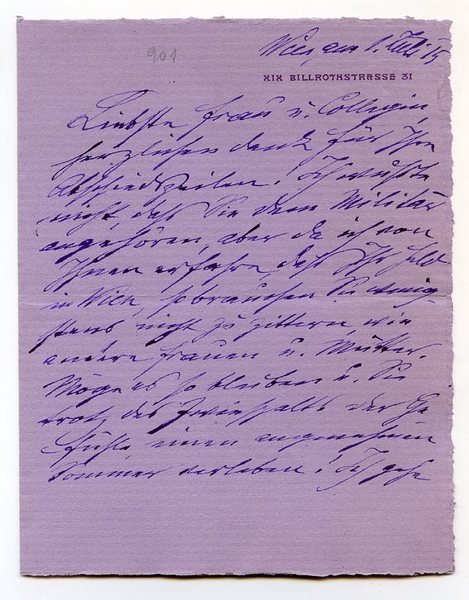 901
Wien, am 1. Juli 15
XIX BILLROTHSTRASSE 31
Liebste Frau u. Collegin,
herzlichen Dank für Ihre
Abschiedszeilen. Ich wußte
nicht, daß Sie dem Militär
angehören, aber da ich von
Ihnen erfahre, daß Ihr Held
in Wien, so brauchen Sie wenig-
stens nicht zu zittern, wie
andere Frauen u. Mütter.
Möge es so bleiben u. Sie
trotz des Zwiespalts der Ge-
fühle einen angenehmen
Sommer verleben. Ich gehe